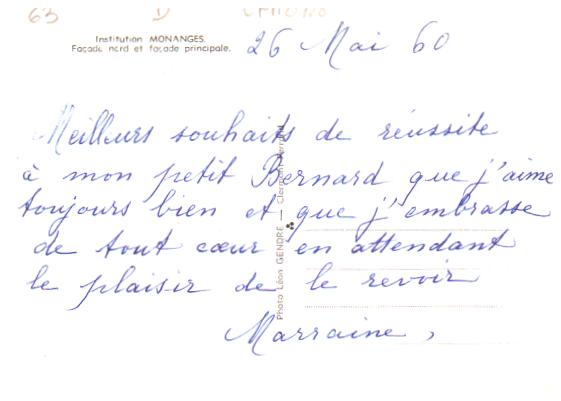 63 D
Institution MONANGES.
Façade nord et façade principale.
26 Mai 60
Meilleurs souhaits de réussite
à mon petit Bernard que j'aime
toujours bien et que j'embrasse
de tout cœur en attendant
le plaisir de le revoir
Marraine,
Photo Léon GENDRE — Clermont-Ferrand